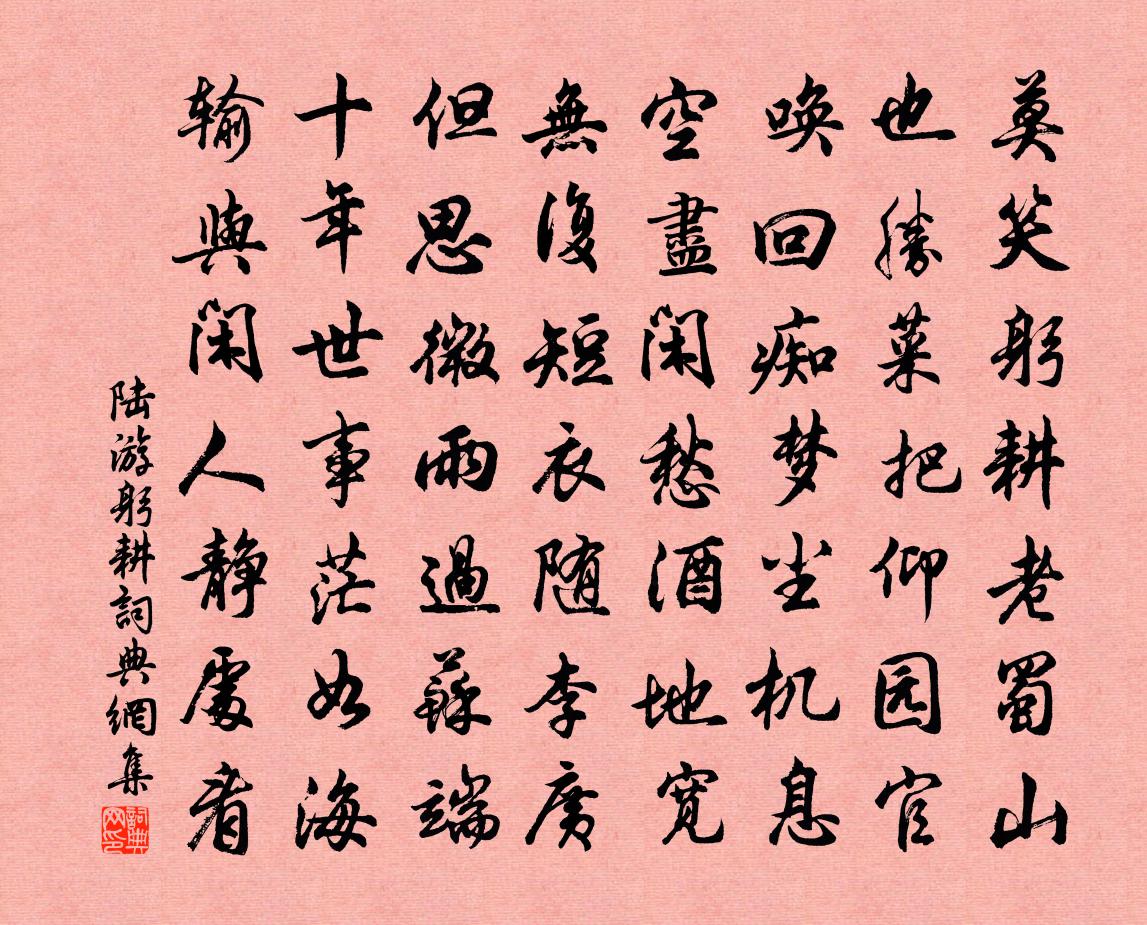 莫笑躬耕老蜀山
也勝菜把仰园官
唤回痴梦尘机息
空盡闲愁酒地宽
無復短衣随李廣
但思微雨過蘇端
十年世事茫如海
输與闲人静處看
陆游躬耕詞典網集
詞典网印